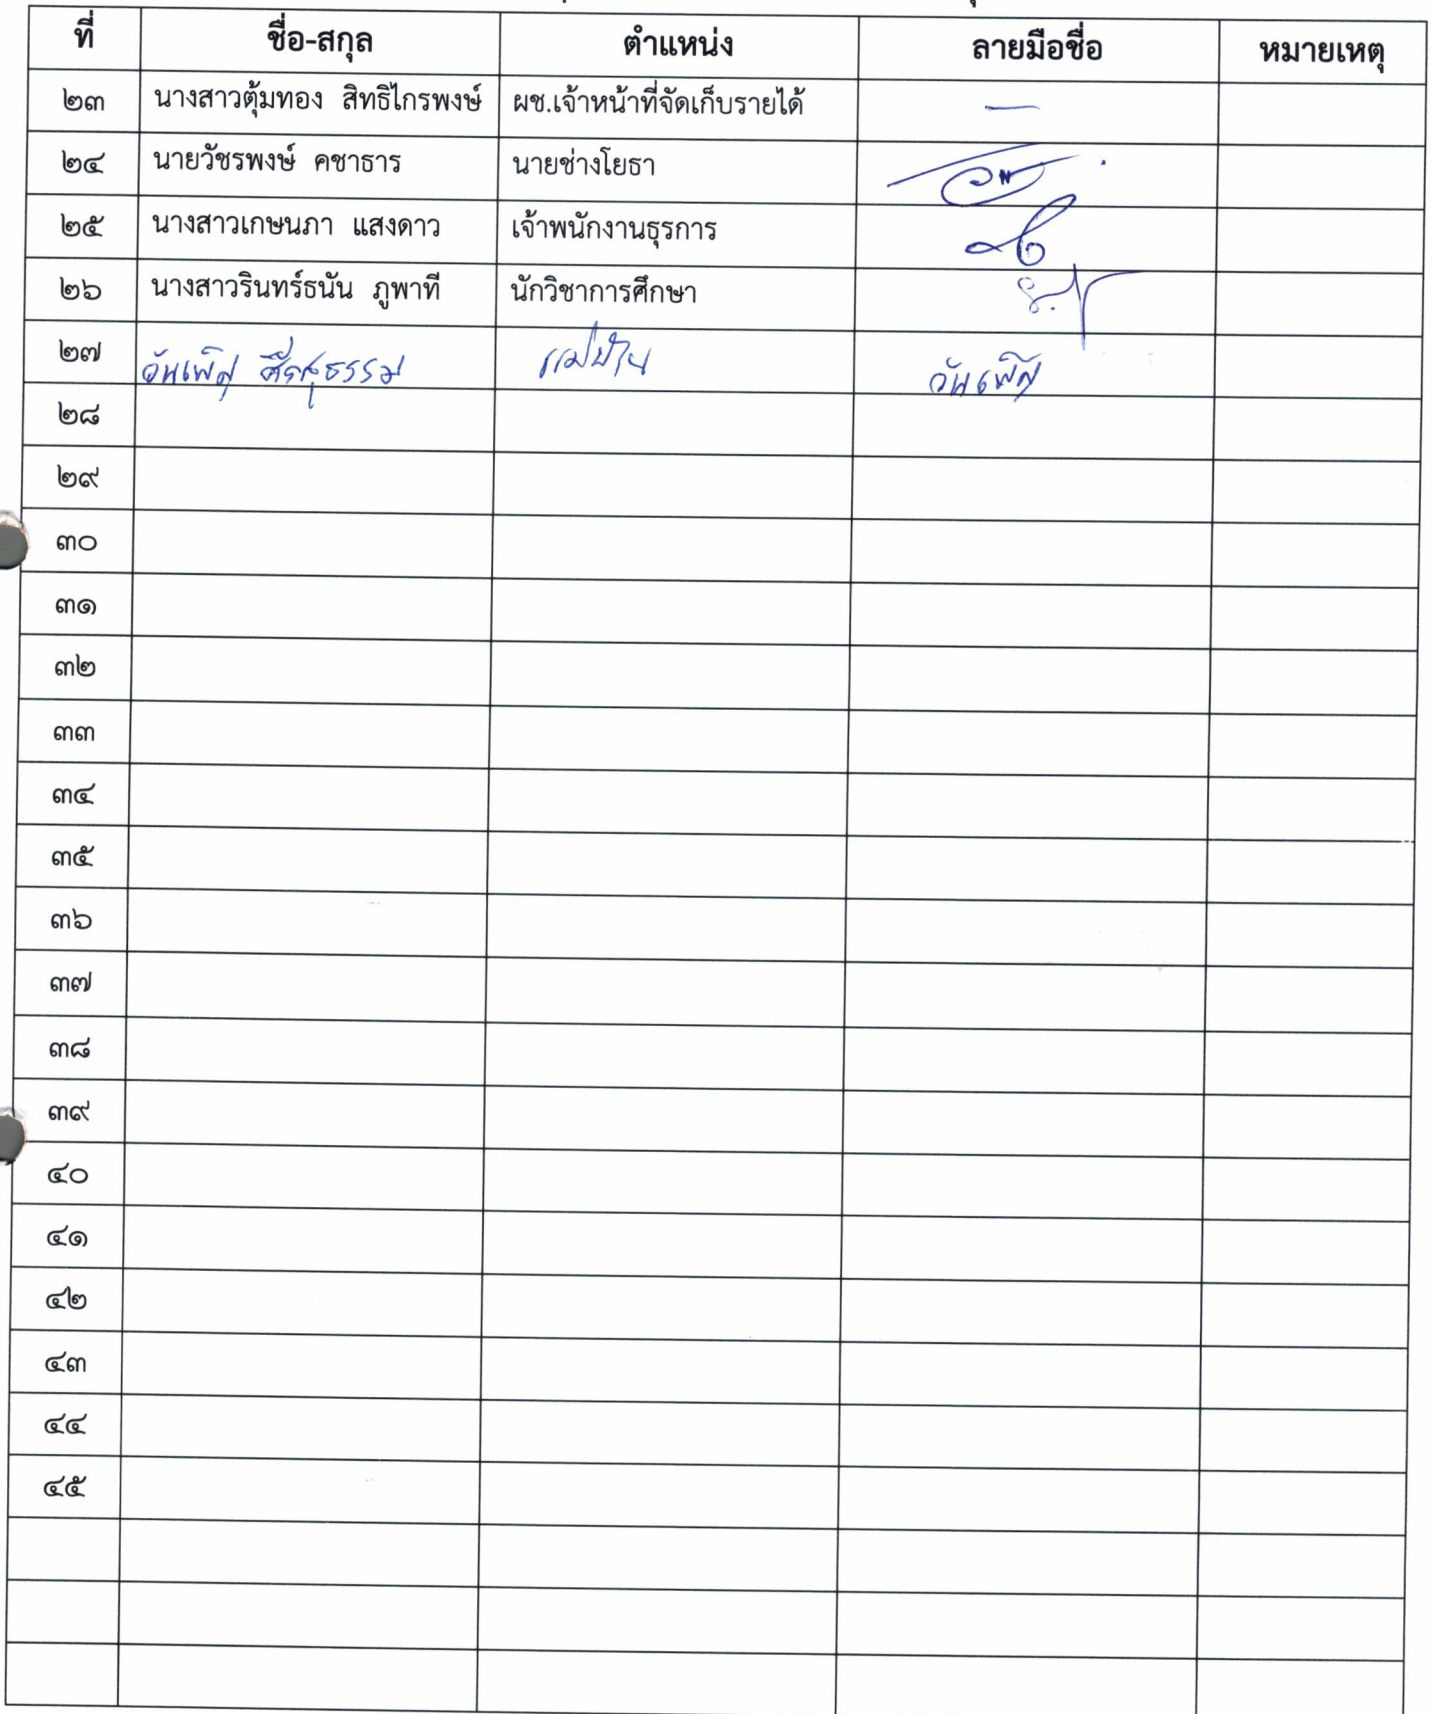 ที่ ชื่อ-สกุล ตำแหน่ง ลายมือชื่อ หมายเหตุ
๒๓ นางสาวตุ้มทอง สิทธิไกรพงษ์ ผช.เจ้าหน้าที่จัดเก็บรายได้ —
๒๔ นายวัชรพงษ์ คชาธาร นายช่างโยธา
๒๕ นางสาวเกษนภา แสงดาว เจ้าพนักงานธุรการ
๒๖ นางสาวรินทร์ธนัน ภูพาที นักวิชาการศึกษา
๒๗ วันเพ็ญ แม่บ้าน วันเพ็ญ
๒๘
๒๙
๓๐
๓๑
๓๒
๓๓
๓๔
๓๕
๓๖
๓๗
๓๘
๓๙
๔๐
๔๑
๔๒
๔๓
๔๔
๔๕